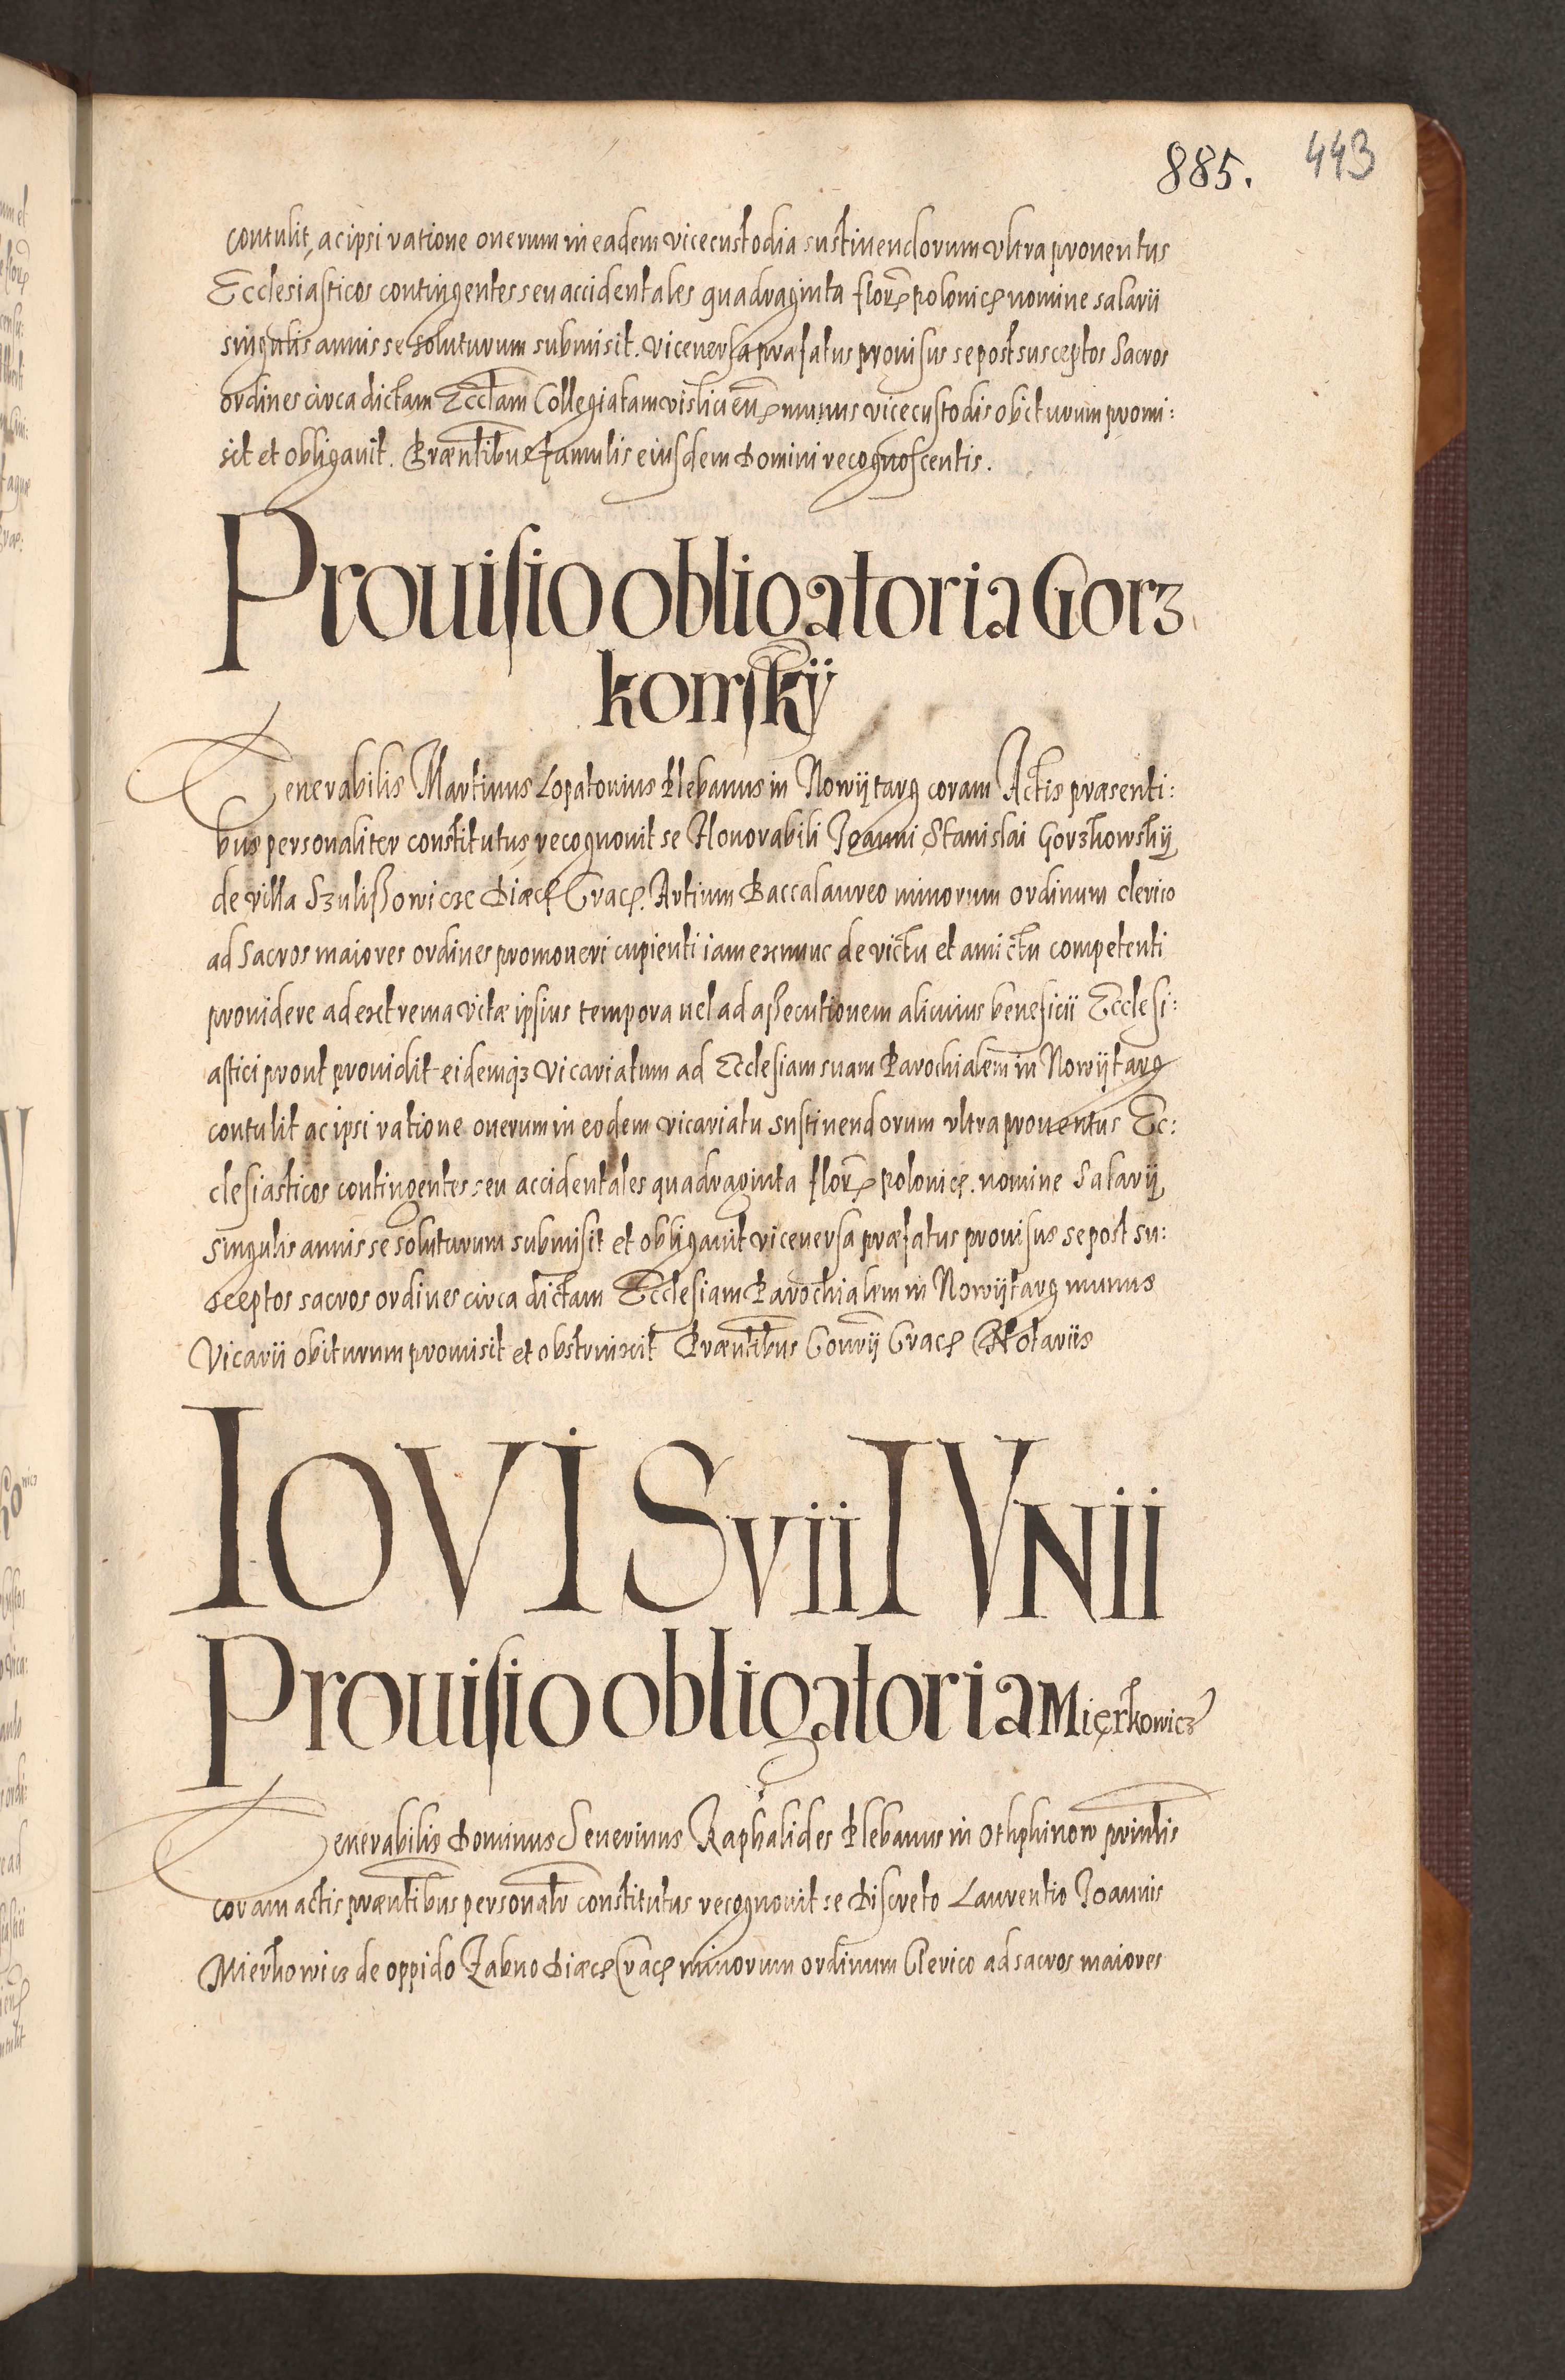 885. 443
contulit, ac ipsi ratione onerum in eadem vicecustodia sustinendorum vltra prouentus
Ecclesiasticos contingentes seu accidentales quadraginta floren̄ polonicę nomine salarii
singulis annis se soluturum submisit. viceuersa præfatus prouisus se post susceptos Sacros
ordines circa dictam Ecc̄tam Collegiatam vislicien̄ munus vicecustodis obiturum promi:
sit et obligauit. Præntibus famulis eiusdem Domini recognoscentis.
Prouisio obligatoria Gorz
kowskÿ
Venerabilis Martinus Lopatouius Plebanus in Nowÿtarg coram Actis præsenti:
bus personaliter constitutus recognouit se Honorabili Joanni Stanislai Gorzkowskÿ
de villa Szulißowicze Diæcę Cracę. Artium Baccalaureo minorum ordinum clerico
ad Sacros maiores ordines promoueri cupienti iam ex nunc de victu et amictu competenti
prouidere ad extrema vitæ ipsius tempora uel ad aßecutionem alicuius beneficii Ecclesi:
astici prout prouidit eidemqꝫ vicariatum ad Ecclesiam suam Parochialem in Nowÿtarg
contulit ac ipsi ratione onerum in eodem vicariatu sustinendorum vltra prouentus Ec:
clesiasticos contingentes seu accidentales quadraginta floren̄ polonicę. nomine Salarÿ
singulis annis se soluturum submisit et obligauit viceuersa præfatus prouisus se post su:
sceptos sacros ordines circa dictam Ecclesiam Parochialem in Nowÿtarg munus
Vicarii obiturum promisit et obstrinxit Præntibus Cracę Notariis
IOVIS vii IVNii
Prouisio obligatoria Mięrkowicz
Venerabilis Dominus Seuerinus Raphalides Plebanus in Othphinow prinlis
coram actis præntibus personalr constitutus recognouit se Discreto Laurentio Joannis
Mierkowicz de oppido Zabno Diæcę Cracę minorum ordinum Clerico ad sacros maiores